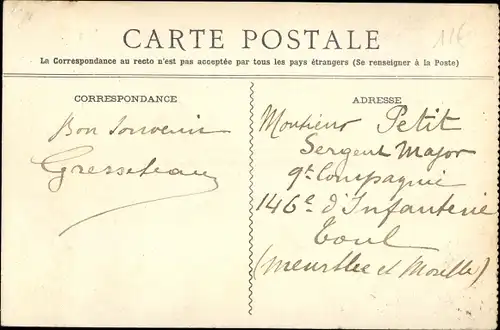 CARTE POSTALE
La Correspondance au recto n'est pas acceptée par tous les pays étrangers (Se renseigner à la Poste)
CORRESPONDANCE
Bon Souvenir
ADRESSE
Monsieur Petit
Sergent Major
9e Compagnie
146e d'Infanterie
Toul
(Meurthe et Moselle)